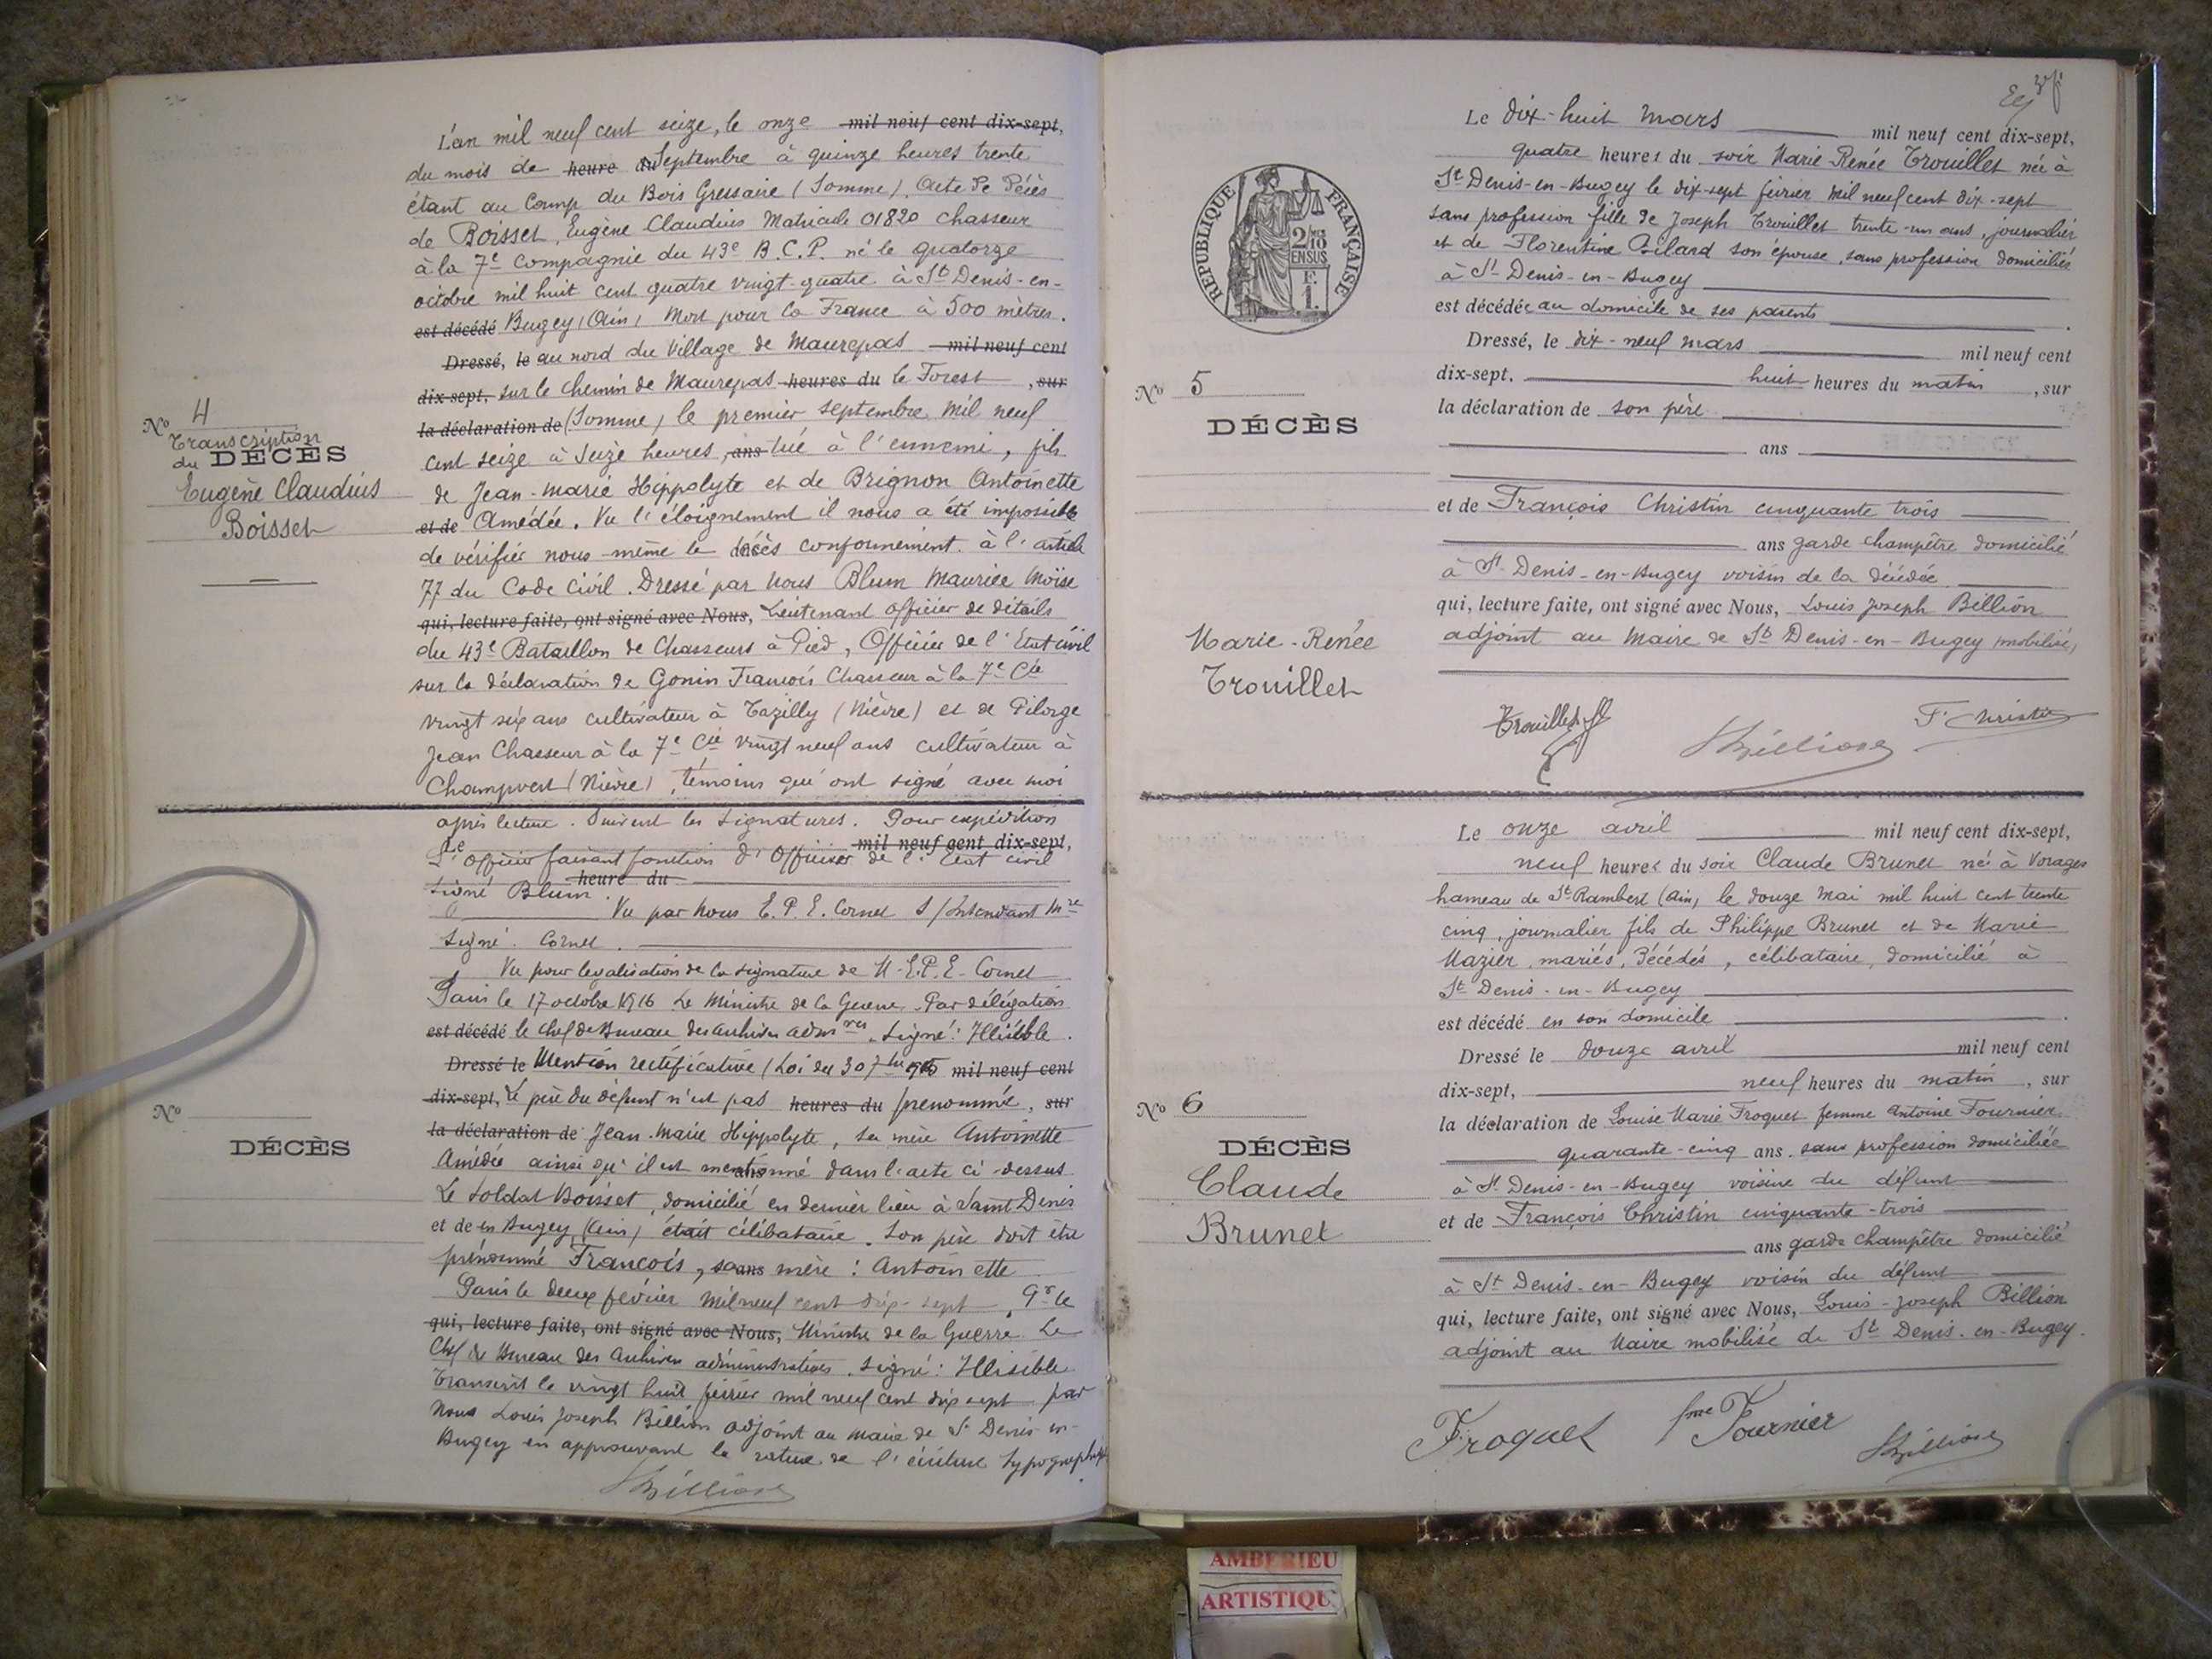 L'an mil neuf cent seize, le onze mil neuf cent dix-sept,
du mois de heure du Septembre à quinze heures trente
étant au Camp du Bois Gressaire (Somme). Acte de décès
de Boisset, Eugène Claudius Matricule 01820 chasseur
à la 7e Compagnie du 43e B.C.P. né le quatorze
octobre mil huit cent quatre vingt-quatre à St Denis-en-
est décédé Bugey (Ain) Mort pour la France à 500 mètres.
Dressé, le au nord du Village de Maurepas mil neuf cent
dix-sept, sur le chemin de Maurepas heures du le Forest, sur
la déclaration de (Somme) le premier septembre mil neuf
cent seize à seize heures, ans tué à l'ennemi, fils
de Jean-Marie Hippolyte et de Brignon Antoinette
et de Amédée. Vu l'éloignement il nous a été impossible
de vérifier nous-même le décès conformément à l'article
77 du Code Civil. Dressé par nous Blum Maurice Moïse
qui, lecture faite, ont signé avec Nous, Lieutenant officier de détails
du 43e Bataillon de Chasseurs à Pied, Officier de l'Etat civil
sur la déclaration de Gonin François Chasseur à la 7e Cie
vingt six ans cultivateur à Tazilly (Nièvre) et de Pilorge
Jean Chasseur à la 7e Cie vingt neuf ans cultivateur à
Champvert (Nièvre), témoins qui ont signé avec moi
No 4
Transcription
du DÉCÈS
Eugène Claudius
Boisset
après lecture. Suivent les signatures. Pour expédition
Le mil neuf cent dix-sept,
L'Officier faisant fonction d'Officier de l'Etat civil
heure du
signé Blum.
Vu par nous E. P. E. Cornet S/Intendant Mre
signé. Cornet.
Vu pour légalisation de la signature de M. E.P.E. Cornet
Paris le 17 octobre 1916 Le Ministre de la Guerre. Par délégation
est décédé le chef de Bureau des archives admves. Signé: Illisible.
Dressé le Mention rectificative (Loi du 30 7bre 1915 mil neuf cent
dix-sept, Le père du défunt n'est pas heures du prenommé, sur
la déclaration de Jean-Marie Hippolyte, sa mère Antoinette
Amédée ainsi qu'il est mentionné dans l'acte ci-dessus
Le soldat Boisset, domicilié en dernier lieu à Saint Denis
et de en Bugey, (Ain) était célibataire. Son père doit être
prénommé François, sa ans mère: Antoinette
Paris le deux février mil neuf cent dix-sept, Pr le
qui, lecture faite, ont signé avec Nous, Ministre de la Guerre. Le
Chef du Bureau des Archives administratives. Signé: Illisible
Transcrit le vingt huit février mil neuf cent dix sept par
Nous Louis Joseph Billion adjoint au maire de St Denis-en-
Bugey en approuvant la rature de l'écriture typographique
LBillion
No
DÉCÈS
RÉPUBLIQUE FRANÇAISE
2/10
EN SUS
F.
1.
Le dix-huit mars mil neuf cent dix-sept,
quatre heures du soir Marie-Renée Trouillet née à
St Denis-en-Bugey le dix-sept février mil neuf cent dix-sept
sans profession fille de Joseph Trouillet trente-un ans, journalier
et de Florentine Bilard son épouse, sans profession domiciliés
à St Denis-en-Bugey
est décédée au domicile de ses parents.
Dressé, le dix-neuf mars mil neuf cent
dix-sept, huit heures du matin, sur
la déclaration de son père
ans
et de François Christin cinquante trois
ans garde champêtre domicilié
à St Denis-en-Bugey voisin de la décédée
qui, lecture faite, ont signé avec Nous, Louis Joseph Billion
adjoint au Maire de St Denis-en-Bugey (mobilisé)
Trouillet
LBillion
F. Christin
No 5
DÉCÈS
Marie-Renée
Trouillet
Le onze avril mil neuf cent dix-sept,
neuf heures du soir Claude Brunet né à Vorages
hameau de St Rambert (Ain) le douze mai mil huit cent trente
cinq, journalier fils de Philippe Brunet et de Marie
Mazier, mariés, décédés, célibataire, domicilié à
St Denis-en-Bugey
est décédé en son domicile.
Dressé le douze avril mil neuf cent
dix-sept, neuf heures du matin, sur
la déclaration de Louise Marie Froquet femme Antoine Fournier
quarante-cinq ans. sans profession domiciliée
à St Denis-en-Bugey voisine du défunt
et de François Christin cinquante-trois
ans garde champêtre domicilié
à St Denis-en-Bugey voisin du défunt
qui, lecture faite, ont signé avec Nous, Louis-Joseph Billion
adjoint au Maire mobilisé de St Denis-en-Bugey.
Froquet fme Fournier
LBillion
No 6
DÉCÈS
Claude
Brunet
AMBERIEU
ARTISTIQU